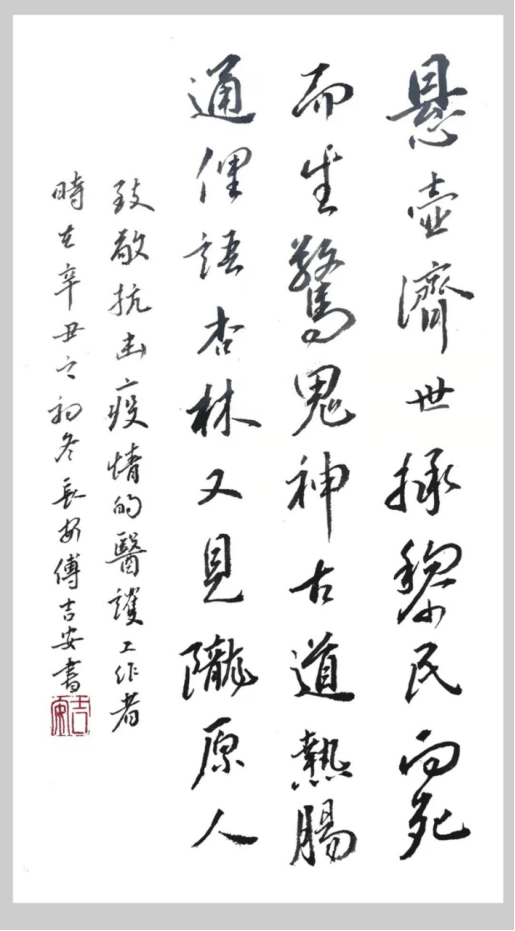 悬壶濟世拯黎民向死
而生驚鬼神古道熱腸
通俚語杏林又見隴原人
致敬抗击疫情的醫護工作者
時在辛丑之初冬長安傅吉安書
吉安